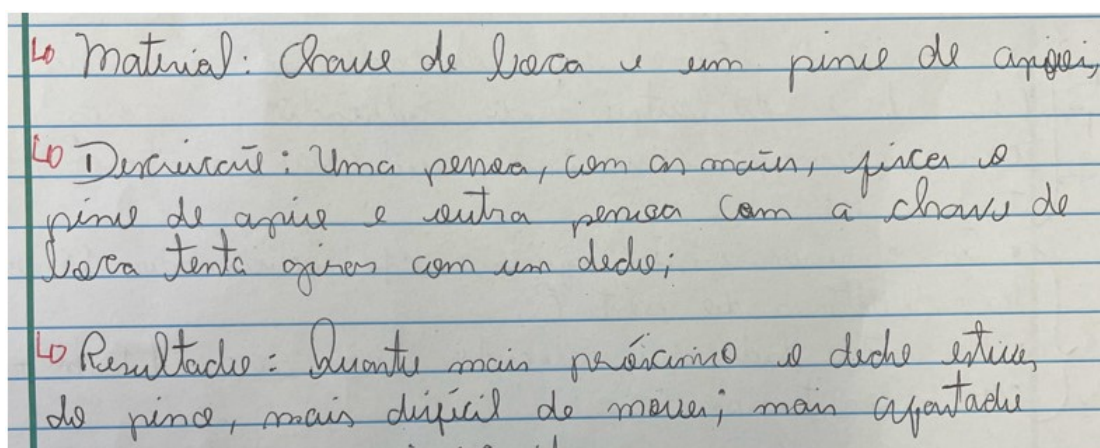 ↳ Material: Chave de boca e um pino de apoio;
↳ Descrição: Uma pessoa, com as mãos, fixa o
pino de apoio e outra pessoa com a chave de
boca tenta girar com um dedo;
↳ Resultado: Quanto mais próximo o dedo estiver
do pino, mais difícil de mover; mais afastado